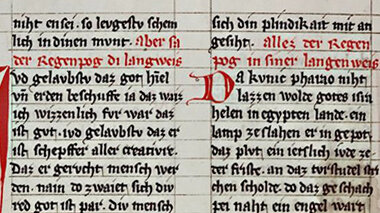 niht ensei. so levgestv schem
lich in dinen mvnt. Aber sa
der Regenpog in di langweis
Ivd gelavbstv daz got himel
vn̄ erden beschuffe ia daz warz
ich wizzenlich fvr war daz
ist gvt. ivd gelavbstv daz er
ist schepffer aller creativre.
Daz er gervcht mensch wer
den. nain do zwaiet sich div
red got ist par. div mensch
sich din plindikait mit an
gesiht. Allez der Regen
pog in siner langenweis
Da kvnic pharao niht
lazzen wolde gotes isra
helen in egypten lande. ein
lamp ze slahen er in gepot.
daz plvt ein ietslich ivde ze
der frist. an daz tvrstudel stri
chen scholde. do daz geschach
pei naht ein engel wart